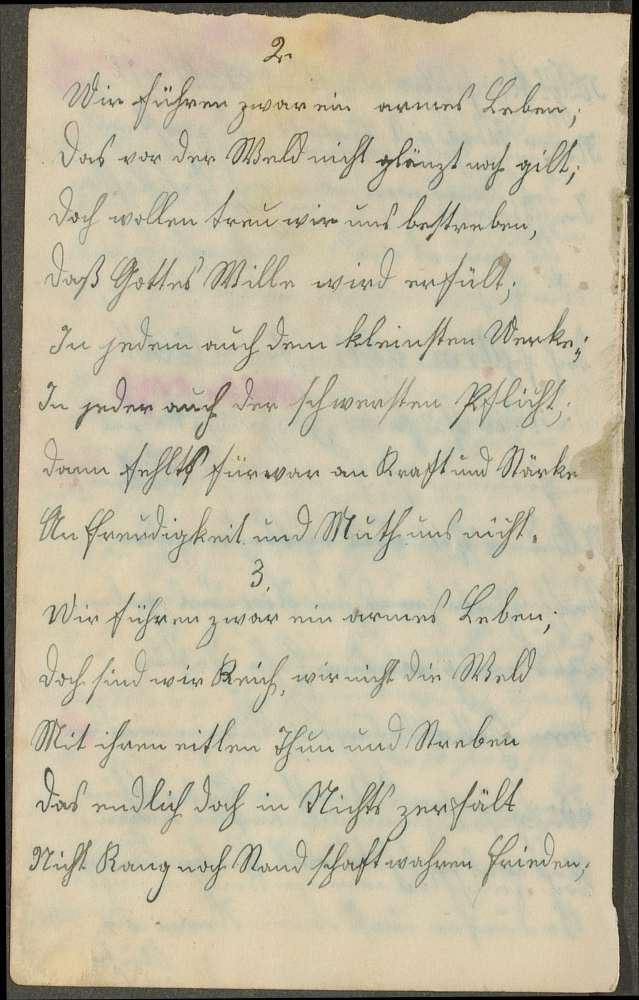 2.
Wir führen zwar ein armes Leben;
Das vor der Weld nicht glänzt noch gilt;
Doch wollen treu wir uns bestreben,
Daß Gottes Wille wird erfült;
In jedem auch dem kleinsten Werke;
In jeder auch der schwersten Pflicht;
dann fehlts fürwar an Kraft und Stärke
An Freudigkeit und Muth uns nicht.
3.
Wir führen zwar ein armes Leben;
Doch sind wir Reich, wir nicht die Weld
Mit ihren eitlen Thun und Streben
Das endlich doch in Nichts zerfält
Nicht Rang noch Stand schaft wahren Frieden;